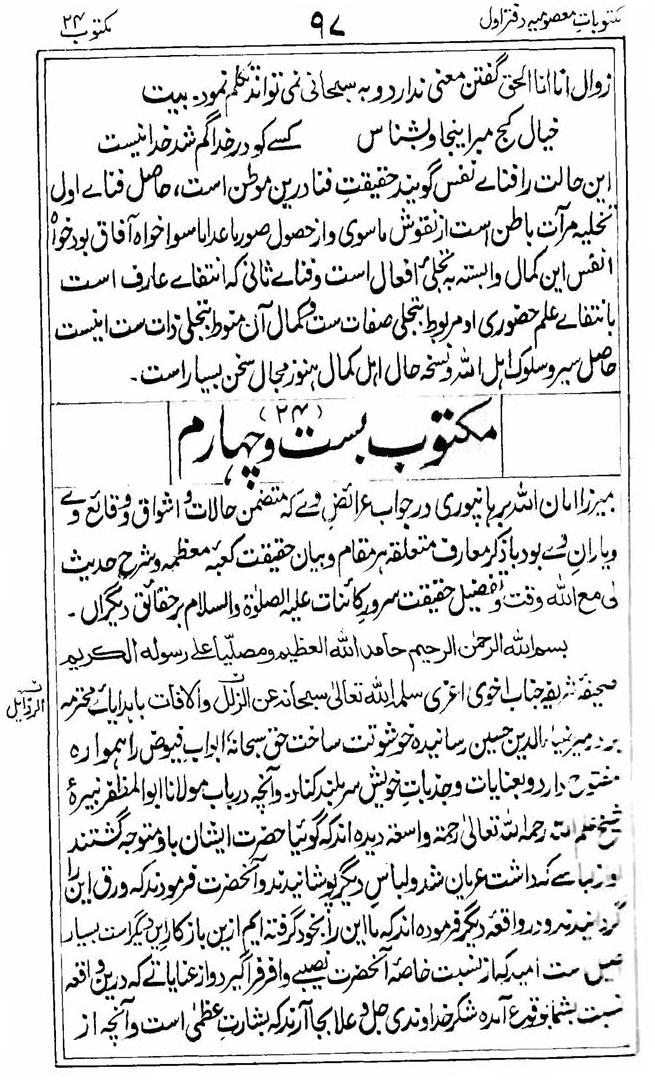 مکتوباتِ معصومیہ دفتر اول ۹۷ مکتوب ۲۴
زوال انا انا الحق گفتن معنی ندارد و به سبحانی نمی تواند تکلم نمود۔ بیت
خیال کج مبر اینجا و بشناس کسے کو در خدا گم شد خدا نیست
این حالت را فنائے نفس گویند حقیقتِ فنا درین موطن است، حاصل فنائے اول
تخلیہ مرآت باطن است از نقوش ماسوی و از حصول صور ماعدا ماسوا خواہ آفاق بود خواہ
انفس این کمال وابستہ بہ تجلیٔ افعال است و فنائے ثانی کہ انتفائے عارف است
بانتفائے علم حضوری او مربوط بتجلی صفات ست و کمال آن منوط بتجلی ذات ست اینست
حاصل سیر و سلوک اہل اللہ و نسخہ حال اہل کمال ہنوز مجال سخن بسیار است۔
مکتوب بست و چہارم (۲۴)
میرزا امان اللہ برہانپوری در جواب عرائض وے کہ متضمن حالات و اشواق و وقائع وے
و یاران وے بود با ذکر معارف متعلقہ ہر مقام و بیان حقیقت کعبہ معظمہ و شرح حدیث
لی مع اللہ وقت و تفضیل حقیقت سرور کائنات علیہ الصلوٰۃ والسلام بر حقائق دیگراں۔
بسم اللہ الرحمٰن الرحیم حامداً للہ العظیم و مصلیاً علےٰ رسولہ الکریم
صحیفہ شریفہ جناب اخوی اعزی سلمہ اللہ تعالیٰ سبحانہ عن الزلل والآفات با ہدایائے محترمہ
ن الرذایل
الدین حسین رسانیدہ خوشوقت ساخت حق سبحانہ ابواب فیوض را ہموارہ
مفتوح دارد و بعنایات و جذبات خویش سربلند کناد۔ و آنچہ در باب مولانا ابو المظفر نبیرۂ
شیخ رحمہ اللہ تعالیٰ رحمۃ واسعۃ دیدہ اند کہ گوئیا حضرت ایشان باو متوجہ گشتند
کہ داشت عریان شد و لباس دیگر پوشانیدند و آنحضرت فرمودند کہ ورق این را
گردانیدند و در واقعہ دیگر فرمودہ اند کہ ما این را بخود گرفتہ ایم ازین باز کار این دیگر است بسیار
ست امید کہ از نسبت خاصۂ آنحضرت نصیبے وافر فراگیرد و از عنایاتے کہ درین واقعہ
نسبت بشما بوقوع آمدہ شکر خداوندی جل و علا بجا آرند کہ بشارتِ عظمیٰ است و آنچہ از